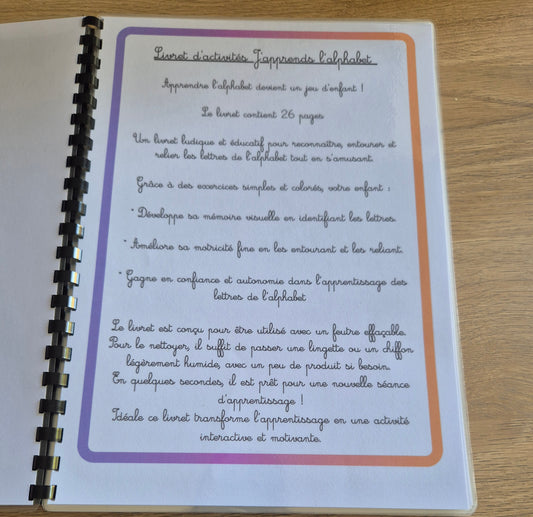 Livret d'activités J'apprends l'alphabet
Apprendre l'alphabet devient un jeu d'enfant !
Le livret contient 26 pages
Un livret ludique et éducatif pour reconnaître, entourer et
relier les lettres de l'alphabet tout en s'amusant.
Grâce à des exercices simples et colorés, votre enfant :
* Développe sa mémoire visuelle en identifiant les lettres.
* Améliore sa motricité fine en les entourant et les reliant.
* Gagne en confiance et autonomie dans l'apprentissage des
lettres de l'alphabet
Le livret est conçu pour être utilisé avec un feutre effaçable.
Pour le nettoyer, il suffit de passer une lingette ou un chiffon
légèrement humide, avec un peu de produit si besoin.
En quelques secondes, il est prêt pour une nouvelle séance
d'apprentissage !
Idéale ce livret transforme l'apprentissage en une activité
interactive et motivante.